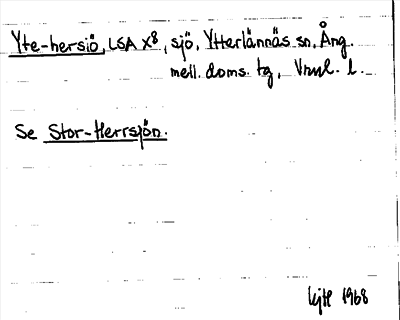 Yte-hersiö, LSA X⁸, sjö, Ytterlännäs sn, Ång.
mell. doms. tg, Vnrl. l.
Se Stor-Herrsjön.
1968